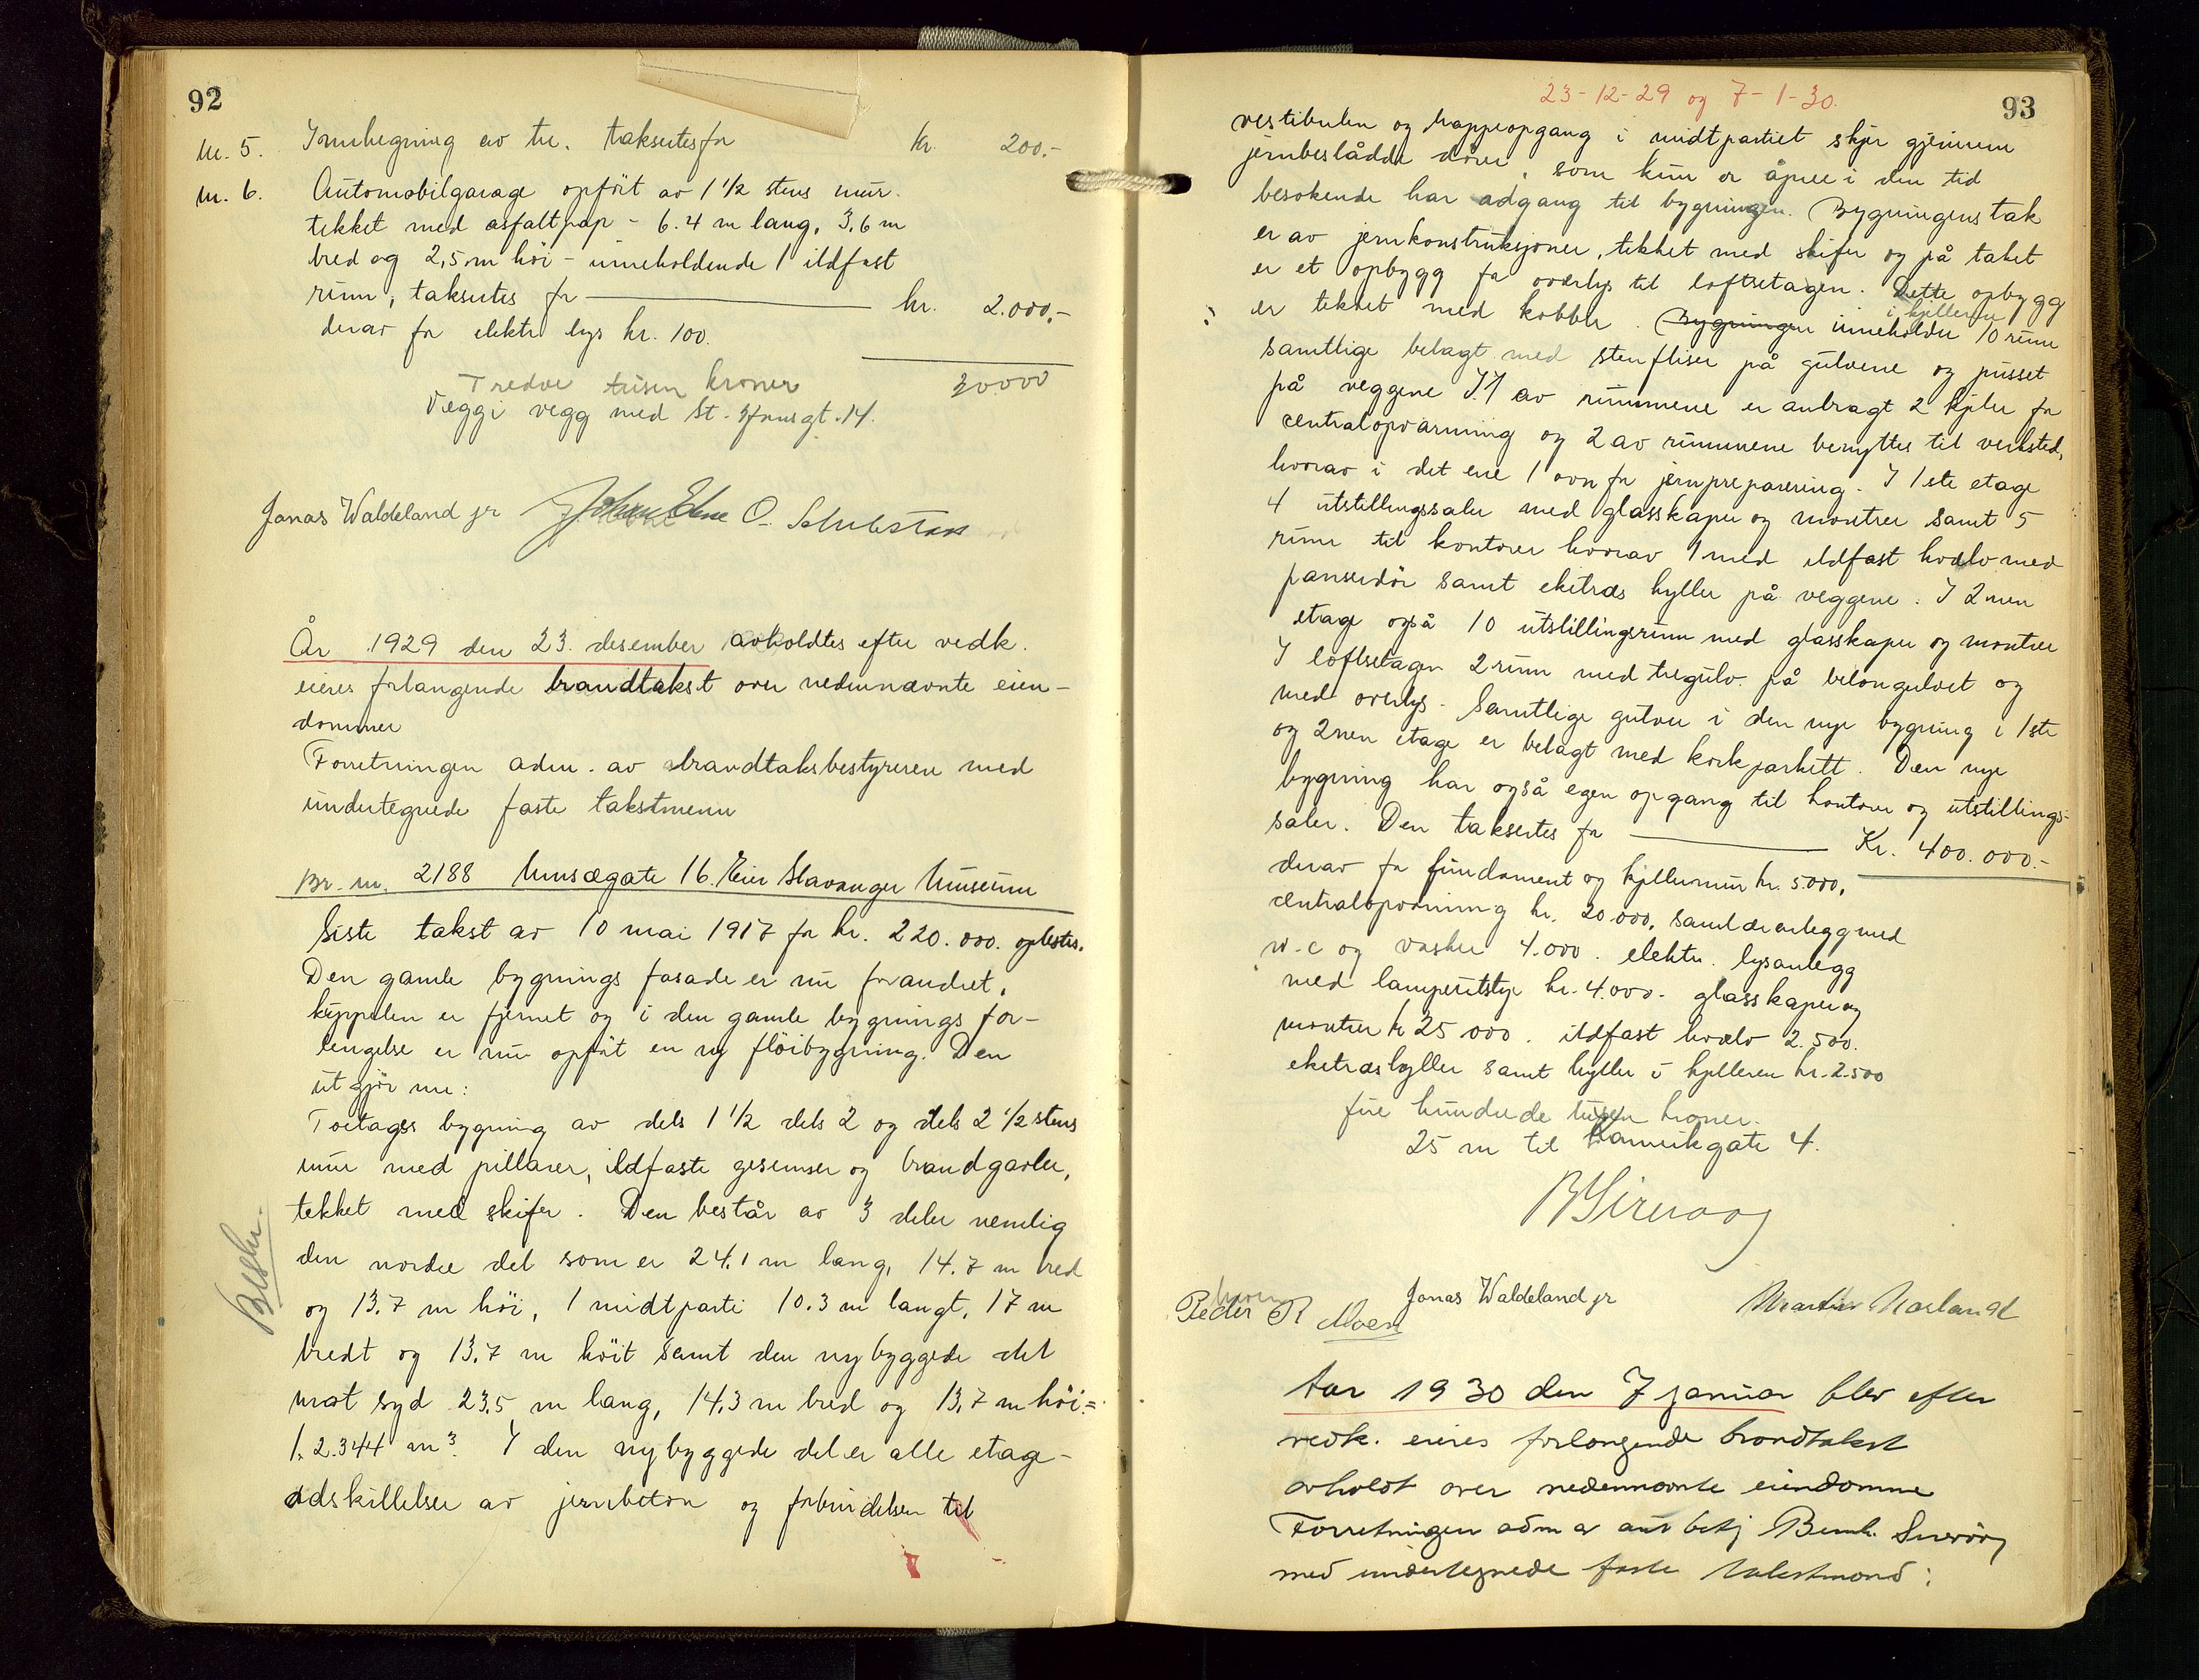 92
nr. 5. Innhegning av tre. taksertes for kr. 200.-
nr. 6. Automobilgarage opført av 1 1/2 stens mur.
tekket med asfaltpap - 6.4 m lang, 3,6 m
bred og 2,5 m høi - inneholdende 1 ildfast
rum, taksertes for kr. 2.000.-
derav for elektr lys kr. 100.
Tredve tusen kroner 30000
Vegg i vegg med St. Hansgt. 14.
Jonas Waldeland jr O.
År 1929 den 23. desember avholdtes efter vedk.
eieres forlangende brandtakst over nedennævnte eien-
dommer
Forretningen adm. av brandtakstbestyreren med
undertegnede faste takstmenn
Br. nr. 2188 Musègate 16. Eier Stavanger Museum
Siste takst av 10 mai 1917 for kr. 220.000. opløstes.
Den gamle bygnings fasade er nu forandret,
kuppelen er fjernet og i den gamle bygnings for-
lengelse er nu opført en ny fløibygning. Den
utgjør nu:
Toetages bygning av dels 1 1/2 dels 2 og dels 2 1/2 stens
mur med pillarer, ildfaste gesimser og brandgavler,
tekket med skifer. Den består av 3 deler nemlig
den nordre del som er 24,1 m lang, 14.7 m bred
og 13,7 m høi, 1 midtparti 10.3 m langt, 17 m
bredt og 13,7 m høit samt den nybyggede del
mot syd 23,5 m lang, 14,3 m bred og 13,7 m høi =
1.2.344 m3. I den nybyggede del er alle etage-
adskillelser av jernbeton og forbindelsen til
23-12-29 og 7-1-30.
93
vestibulen og trappeopgang i midtpartiet skjer gjennem
jernbeslådde dører, som kun er åpne i den tid
besøkende har adgang til bygningen. Bygningens tak
er av jernkonstruksjoner, tekket med skifer og på taket
er et opbygg for overlys til loftsetagen. Dette opbygg
er tekket med kobber. Bygningen i kjelleren inneholder 10 rum
samtlige belagt med stenfliser på gulvene og pusset
på veggene I 1 av rummene er anbragt 2 kjeler for
centralopvarmning og 2 av rummene benyttes til verksted,
hvorav i det ene 1 ovn for jernpreparering. I 1ste etage
4 utstillingssaler med glasskaper og montrer samt 5
rum til kontorer hvorav 1 med ildfast hvelv med
panserdør samt eketræs hyller på veggene. I 2nen
etage også 10 utstillingsrum med glasskaper og montrer
I loftsetagen 2 rum med tregulv på betongulvet og
med overlys. Samtlige gulver i den nye bygning i 1ste
og 2nen etage er belagt med korkparkett. Den nye
bygning har også egen opgang til kontorer og utstillings-
saler. Den taksertes for Kr. 400.000.-
derav for fundament og kjellermur kr. 5.000,
centralopvarmning kr. 20.000, sanitæranlegg med
w.c og vasker 4.000. elektr. lysanlegg
med lampeutstyr kr. 4.000. glasskaper og
montrer kr 25000. ildfast hvelv 2.500.
eketræshyller samt hyller i kjelleren kr. 2.500
fire hundrede tusen kroner.
25 m til Kannikgate 4.
Peder R Moen Jonas Waldeland jr
Aar 1930 den 7 januar blev efter
vedk. eieres forlangende brandtakst
avholdt over nedennævnte eiendomme
Forretningen adm av
med undertegnede faste takstmænd: